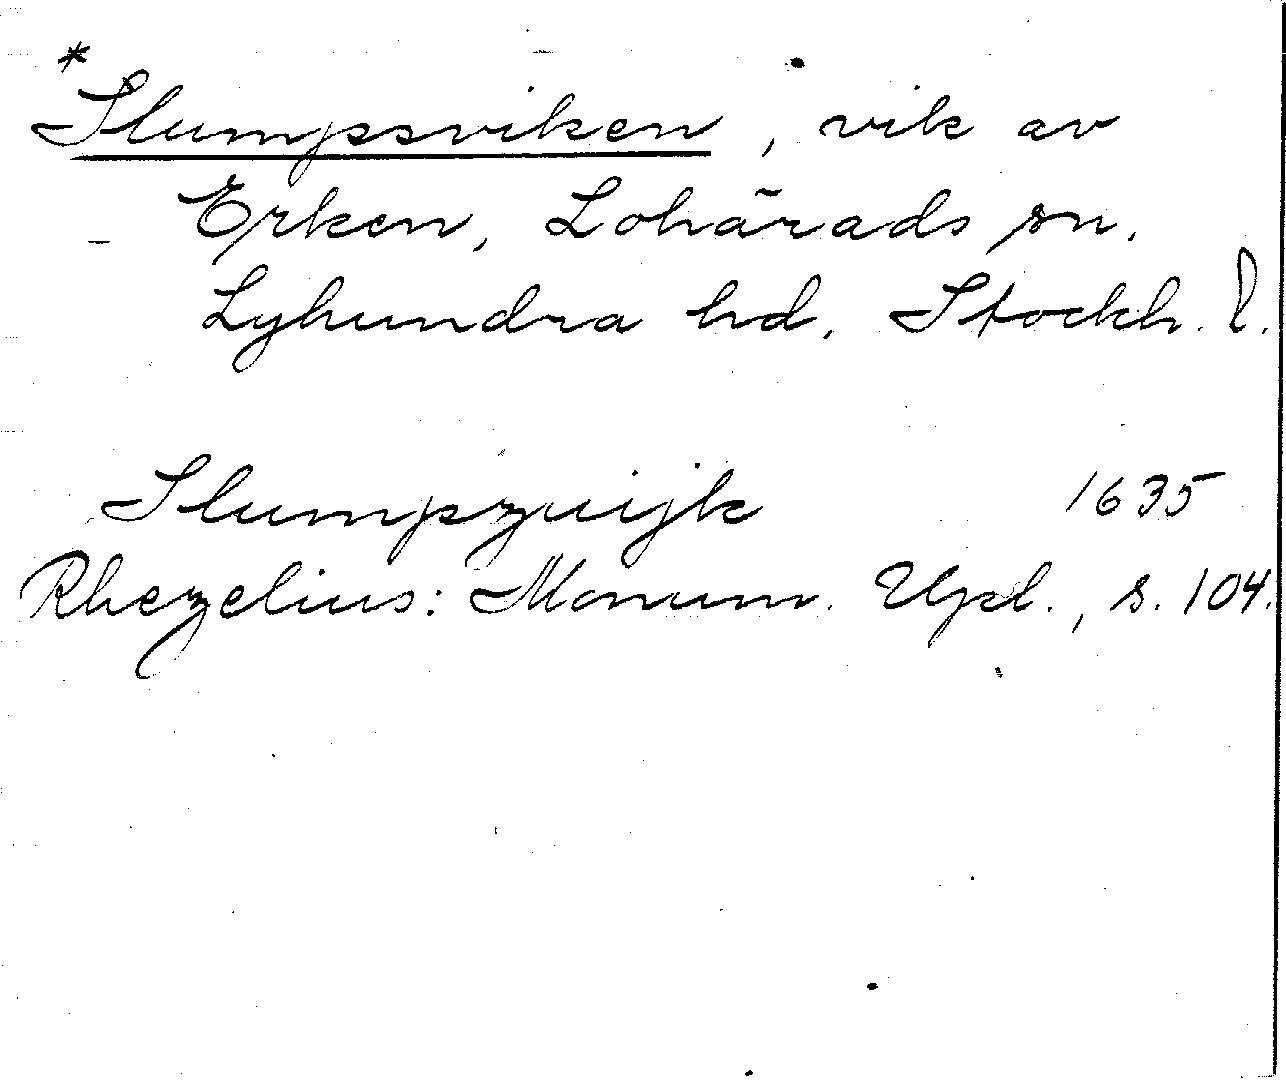 *Slumpsviken, vik av
Erken, Lohärads sn,
Lyhundra hd, Stockh. l.
Slumpzuijk 1635
Rhezelius: Monum. Upl., s. 104.